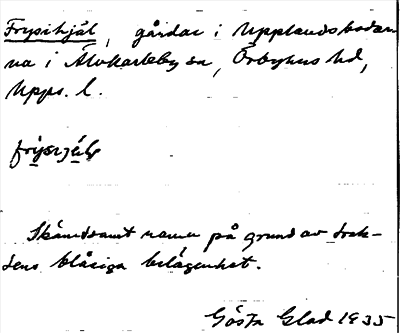 Frysihjäl, gårdar i Upplandsbodar
na i Älvkarleby sn, Örbyhus hd,
Upps. l.
Skämtsamt namn på grund av trak-
tens blåsiga belägenhet.
Gösta Glad 1935